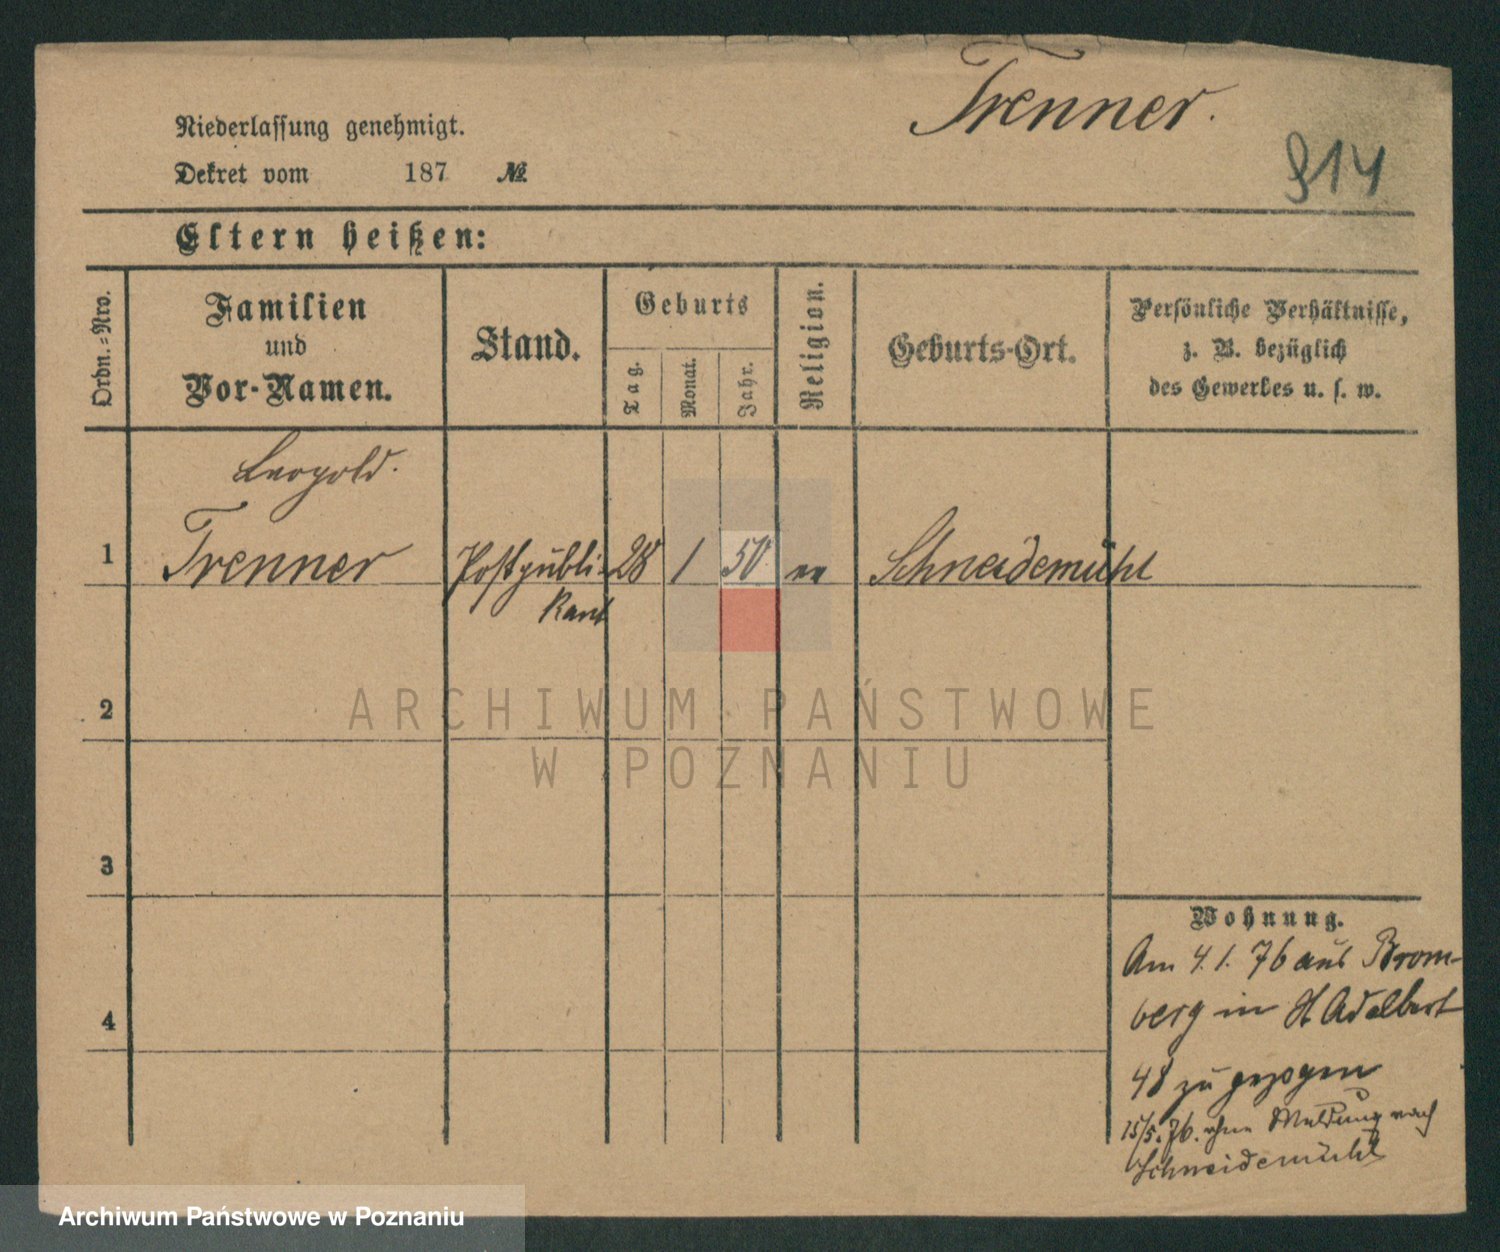 Trenner.
914
Niederlassung genehmigt.
Dekret vom 187 №
Eltern heißen:
Ordn.-Nro.
Familien
und
Vor-Namen.
Stand.
Geburts
Tag.
Monat.
Jahr.
Religion.
Geburts-Ort.
Persönliche Verhältnisse,
z. B. bezüglich
des Gewerbes u. s. w.
Leopold.
1 Trenner Postpubli- 28 1 50 Schneidemühl
kant
2
3
4
Wohnung.
Am 4.1.76 aus Brom-
berg in St Adalbert
48 zu gezogen
15/5.76. ohne Meldung nach
Schneidemühl
ARCHIWUM PAŃSTWOWE
W POZNANIU
Archiwum Państwowe w Poznaniu